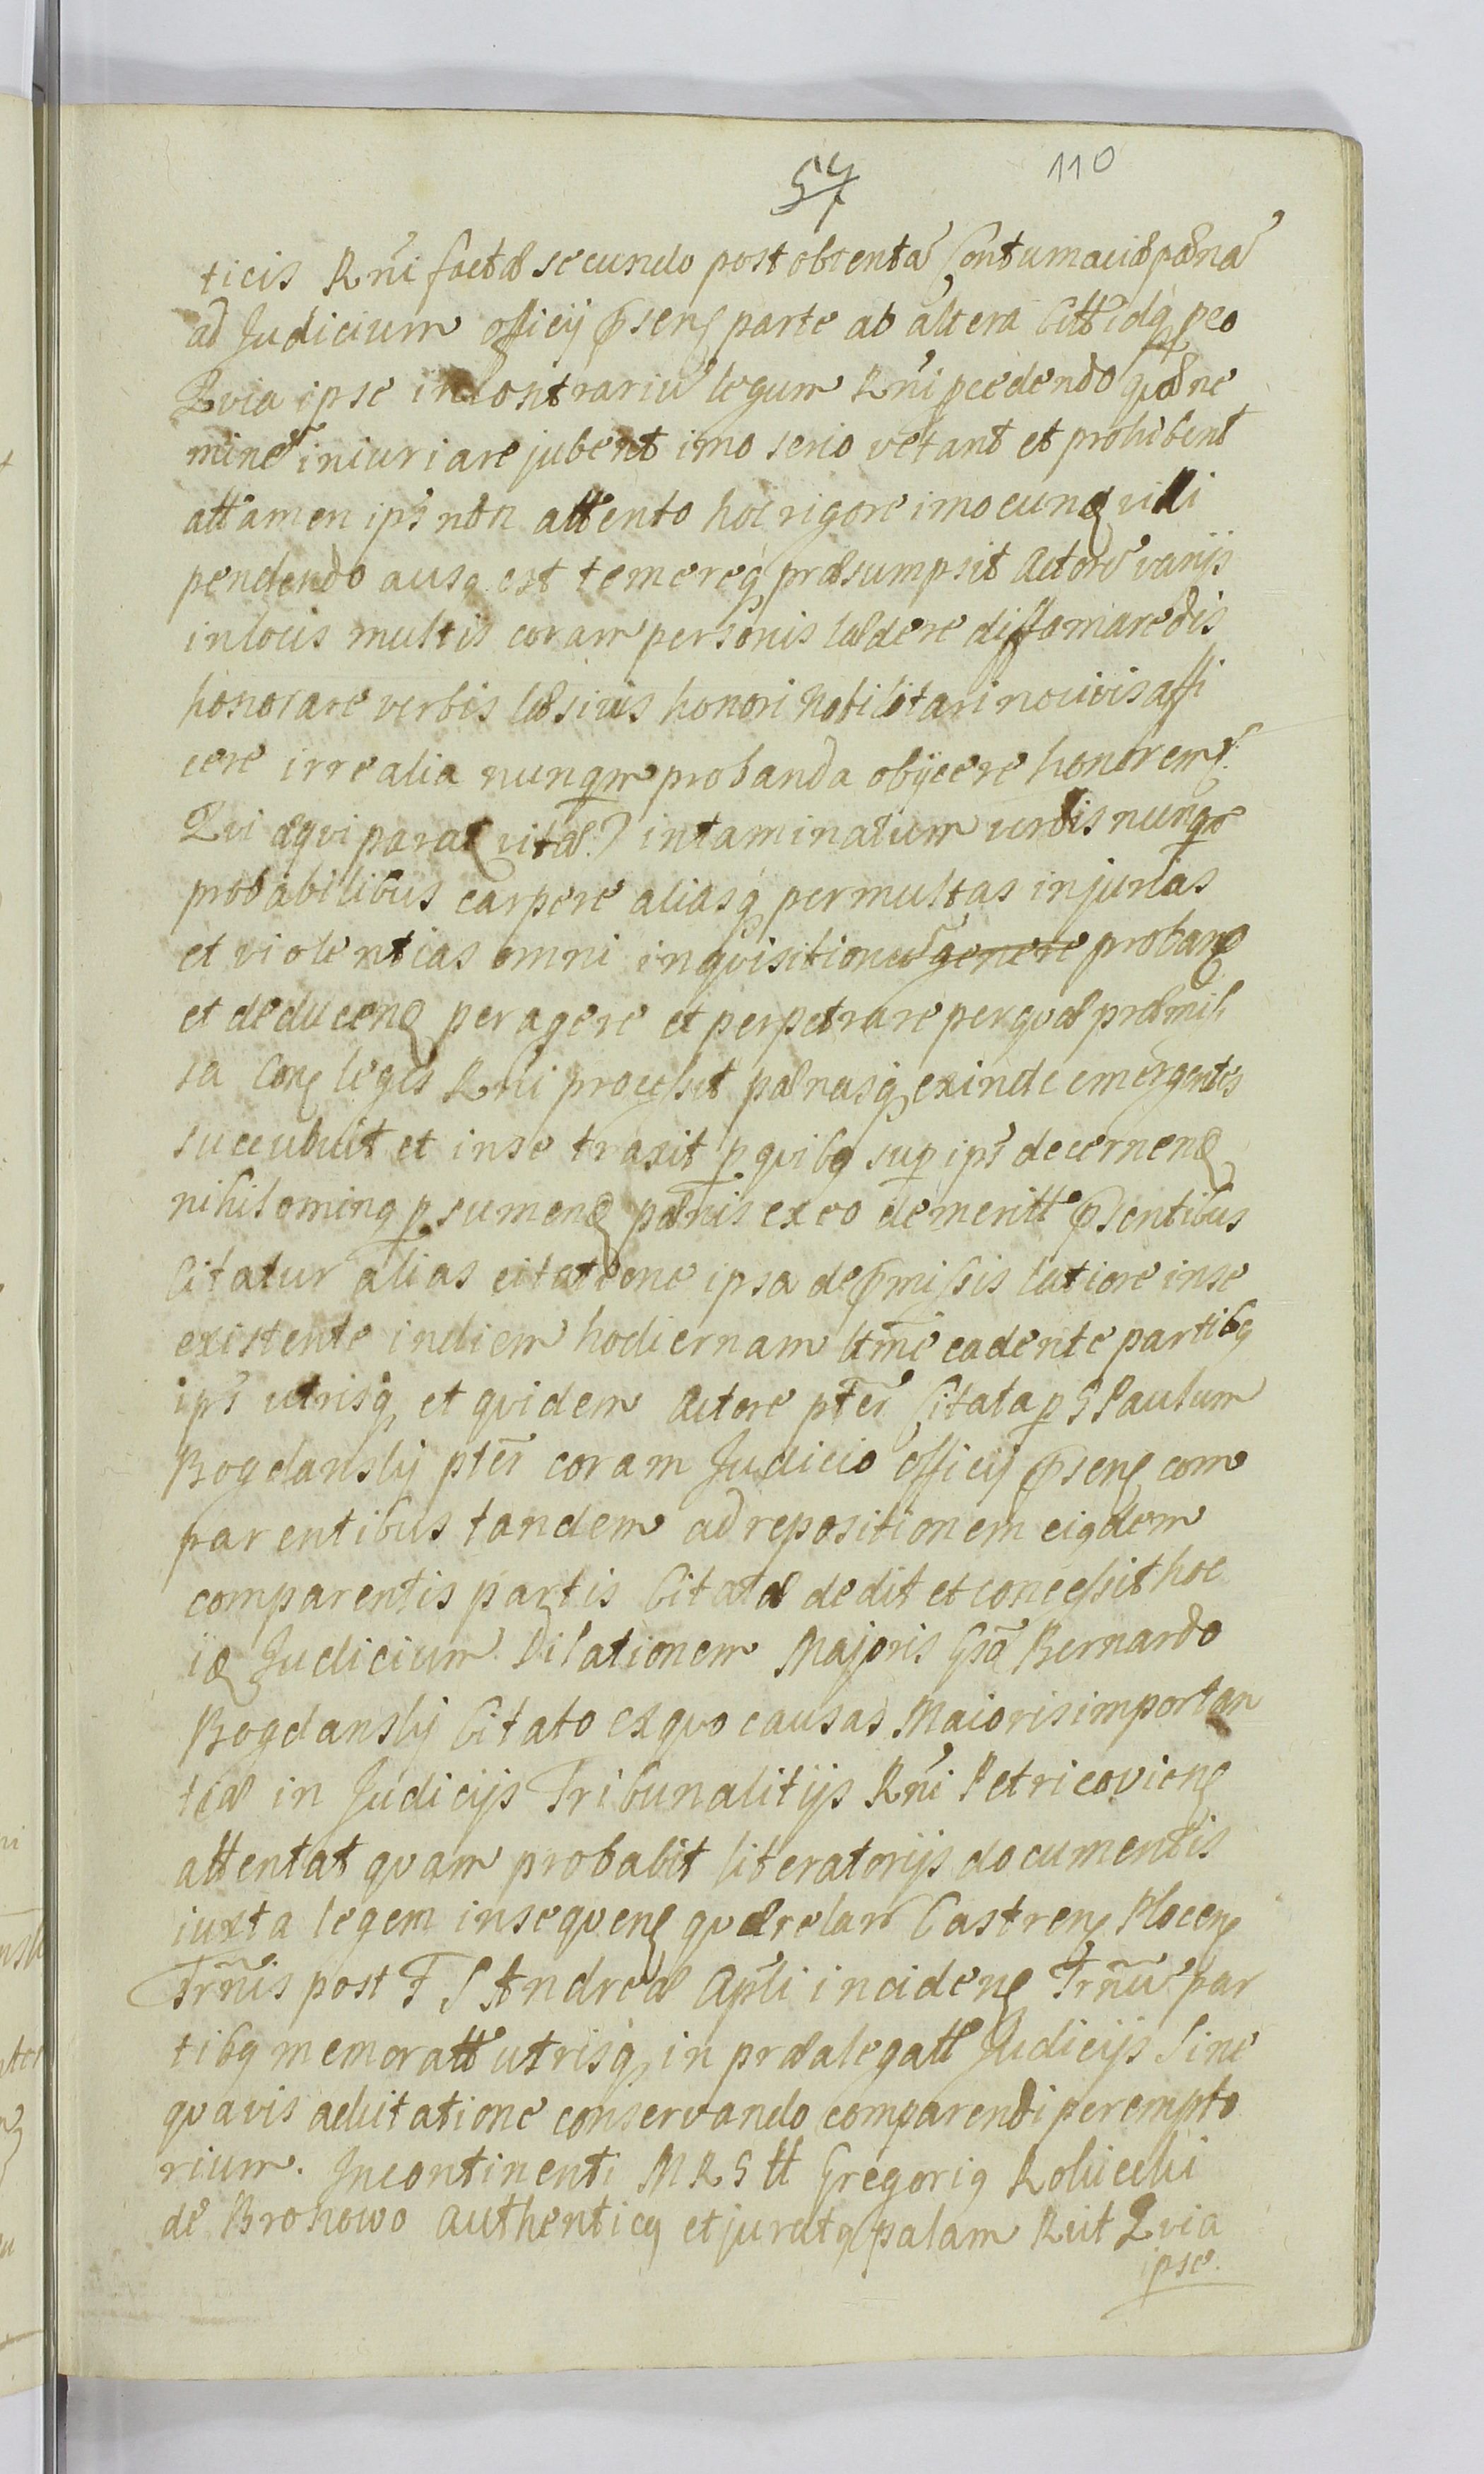 57 110
ticis Rñi factæ secundo post obtentã Contumaciæ pænã
ad Judicium officij p̃sens parte ab altera Citt idq; peo
Qvia ipse in Contrariũ legum Rñi pcedendo qvæ ne
minẽ iniuriare jubent imo serio vetant et prohibent
attamen ips non attento hoc rigore imo eunq vili
pendendo ausq est temereq; præsumpsit Actorẽ varijs
in locis multis coram personis lædere diffamare dis
honorare verbis læsivis honori Nobilitari nocivis affi
cere irrealia nunqm probanda obijcere honorem
Qvi æqviparat vitæ intaminatum verbis nunq̃
probabilibus carpere aliasq; permultas injurias
et violentias omni inqvisitionũ genere proban
et deducen peragere et perpetrare per qvæ præmis
sa Con legis Rni processit pænasq; exinde emergentes
succubuit et in se traxit p qvibq sup ips decernen
nihilominq p sumen pænis ex eo demeritt p̃sentibus
Citatur alias citatione ipsa de p̃missis latiore in se
existente in diem hodiernam ltme cadente partibq
ips utrisq; et qvidem Actore pter Citata p G Paulum
Bogdanskj pter coram Judicio officij p̃sen com
parentibus tandem ad repositionem eiqdem
comparentis partis Citatæ dedit et concessit hoc
iq Judicium Dilationem Majoris Gso Bernardo
Bogdanskj Citato ex qvo causas Maioris importan
tiæ in Judicijs Tribunalitijs Rñi Petricovien
attentat qvam probabit literatorijs documentis
iuxta legem inseqven qværelam Castren Plocen
Trm̃is post F S Andreæ Apli inciden Trm̃ũ par
tibq memoratt utrisq; in præalegatt Judicijs Sine
qvavis aduitatione conservando comparendi perempto
rium. Incontinenti MRS tt Gregoriq Kolucchi
de Bronowo Authenticq et juratq palam Rũt Qvia
ipse.